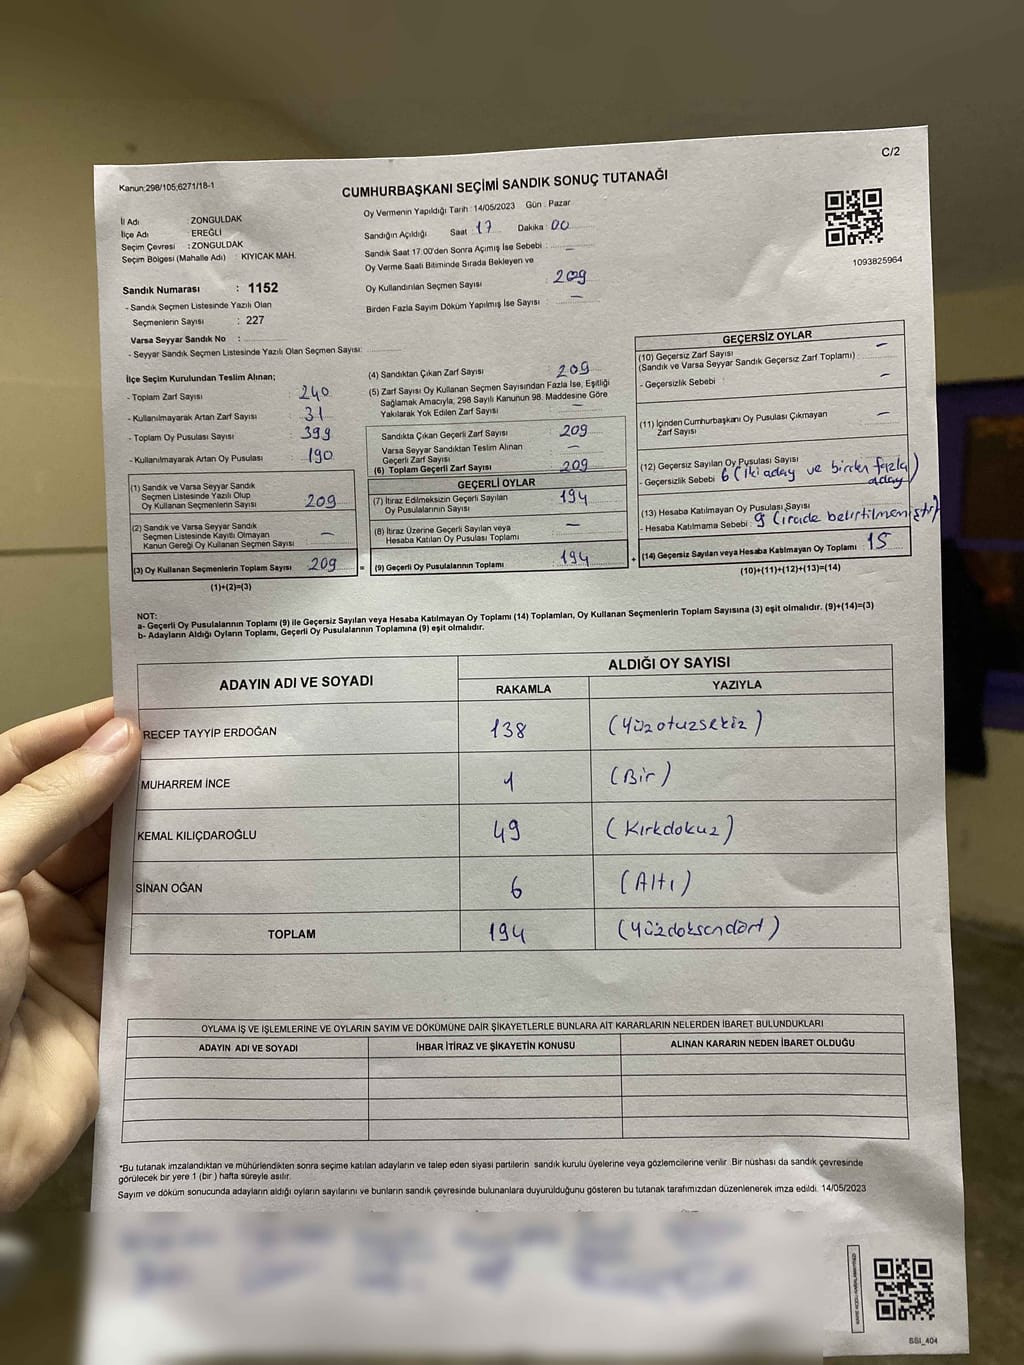 C/2
Kanun:298/105,6271/18-1
CUMHURBAŞKANI SEÇİMİ SANDIK SONUÇ TUTANAĞI
İl Adı : ZONGULDAK
İlçe Adı : EREĞLİ
Seçim Çevresi : ZONGULDAK
Seçim Bölgesi (Mahalle Adı) : KIYICAK MAH.
Sandık Numarası : 1152
- Sandık Seçmen Listesinde Yazılı Olan
Seçmenlerin Sayısı : 227
Varsa Seyyar Sandık No :
- Seyyar Sandık Seçmen Listesinde Yazılı Olan Seçmen Sayısı:
Oy Vermenin Yapıldığı Tarih : 14/05/2023 Gün : Pazar
Sandığın Açıldığı Saat : 17 Dakika : 00
Sandık Saat 17:00'den Sonra Açımış İse Sebebi : –
Oy Verme Saali Bitiminde Sırada Bekleyen ve
Oy Kullandırılan Seçmen Sayısı : 209
Birden Fazla Sayım Döküm Yapılmış İse Sayısı : –
1093825964
İlçe Seçim Kurulundan Teslim Alınan;
- Toplam Zarf Sayısı : 240
- Kullanılmayarak Artan Zarf Sayısı : 31
- Toplam Oy Pusulası Sayısı : 399
- Kullanılmayarak Artan Oy Pusulası : 190
(1) Sandık ve Varsa Seyyar Sandık
Seçmen Listesinde Yazılı Olup
Oy Kullanan Seçmenlerin Sayısı : 209
(2) Sandık ve Varsa Seyyar Sandık
Seçmen Listesinde Kayıtlı Olmayan
Kanun Gereği Oy Kullanan Seçmen Sayısı : –
(3) Oy Kullanan Seçmenlerin Toplam Sayısı : 209
(1)+(2)=(3)
=
(4) Sandıktan Çıkan Zarf Sayısı : 209
(5) Zarf Sayısı Oy Kullanan Seçmen Sayısından Fazla İse, Eşitliği
Sağlamak Amacıyla, 298 Sayılı Kanunun 98. Maddesine Göre
Yakılarak Yok Edilen Zarf Sayısı : –
Sandıkta Çıkan Geçerli Zarf Sayısı : 209
Varsa Seyyar Sandıktan Teslim Alınan
Geçerli Zarf Sayısı : –
(6) Toplam Geçerli Zarf Sayısı : 209
GEÇERLİ OYLAR
(7) İtiraz Edilmeksizin Geçerli Sayılan
Oy Pusulalarının Sayısı : 194
(8) İtiraz Üzerine Geçerli Sayılan veya
Hesaba Katılan Oy Pusulası Toplamı : –
(9) Geçerli Oy Pusulalarının Toplamı : 194
+
GEÇERSİZ OYLAR
(10) Geçersiz Zarf Sayısı : –
(Sandık ve Varsa Seyyar Sandık Geçersiz Zarf Toplamı)
- Geçersizlik Sebebi : –
(11) İçinden Cumhurbaşkanı Oy Pusulası Çıkmayan
Zarf Sayısı : –
(12) Geçersiz Sayılan Oy Pusulası Sayısı
- Geçersizlik Sebebi : 6 (İki aday ve birden fazla
aday)
(13) Hesaba Katılmayan Oy Pusulası Sayısı
- Hesaba Katılmama Sebebi : 9 (irade belirtilmemiştir)
(14) Geçersiz Sayılan veya Hesaba Katılmayan Oy Toplamı : 15
(10)+(11)+(12)+(13)=(14)
NOT:
a- Geçerli Oy Pusulalarının Toplamı (9) ile Geçersiz Sayılan veya Hesaba Katılmayan Oy Toplamı (14) Toplamları, Oy Kullanan Seçmenlerin Toplam Sayısına (3) eşit olmalıdır. (9)+(14)=(3)
b- Adayların Aldığı Oyların Toplamı, Geçerli Oy Pusulalarının Toplamına (9) eşit olmalıdır.
ADAYIN ADI VE SOYADI ALDIĞI OY SAYISI
RAKAMLA YAZIYLA
RECEP TAYYİP ERDOĞAN 138 (Yüzotuzsekiz)
MUHARREM İNCE 1 (Bir)
KEMAL KILIÇDAROĞLU 49 (Kırkdokuz)
SİNAN OĞAN 6 (Altı)
TOPLAM 194 (Yüzdoksandört)
OYLAMA İŞ VE İŞLEMLERİNE VE OYLARIN SAYIM VE DÖKÜMÜNE DAİR ŞİKAYETLERLE BUNLARA AİT KARARLARIN NELERDEN İBARET BULUNDUKLARI
ADAYIN ADI VE SOYADI İHBAR İTİRAZ VE ŞİKAYETİN KONUSU ALINAN KARARIN NEDEN İBARET OLDUĞU
*Bu tutanak imzalandıktan ve mühürlendikten sonra seçime katılan adayların ve talep eden siyasi partilerin sandık kurulu üyelerine veya gözlemcilerine verilir. Bir nüshası da sandık çevresinde
görülecek bir yere 1 (bir ) hafta süreyle asılır.
Sayım ve döküm sonucunda adayların aldığı oyların sayılarını ve bunların sandık çevresinde bulunanlara duyurulduğunu gösteren bu tutanak tarafımızdan düzenlenerek imza edildi. 14/05/2023
SSI_404